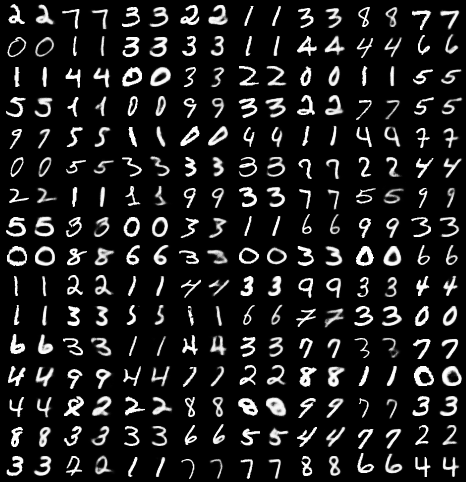 2 2 7 7 3 3 2 2 1 1 3 3 8 8 7 7
0 0 1 1 3 3 3 3 1 1 4 4 4 4 6 6
1 1 4 4 0 0 3 3 2 2 0 0 1 1 5 5
5 5 1 1 0 0 9 9 3 3 2 2 7 7 5 5
9 7 5 5 1 1 0 0 4 4 1 1 4 9 7 7
0 0 5 5 3 3 3 3 3 3 7 7 2 2 4 4
2 2 1 1 1 1 9 9 3 3 7 7 5 5 9 9
5 5 3 3 0 0 3 3 1 1 6 6 9 9 3 3
0 0 8 8 6 6 3 3 0 0 3 3 0 0 6 6
1 1 2 2 1 1 4 4 3 3 9 9 3 3 4 4
1 1 3 3 5 5 1 1 6 6 7 7 3 3 0 0
6 6 3 3 1 1 4 4 3 3 7 7 3 3 7 7
4 4 9 9 4 4 7 7 2 2 8 8 1 1 0 0
4 4 8 2 2 2 8 8 8 8 9 9 7 7 3 3
8 8 3 3 3 3 6 6 5 5 4 4 7 7 2 2
3 3 2 2 1 1 7 7 7 7 8 8 6 6 4 4